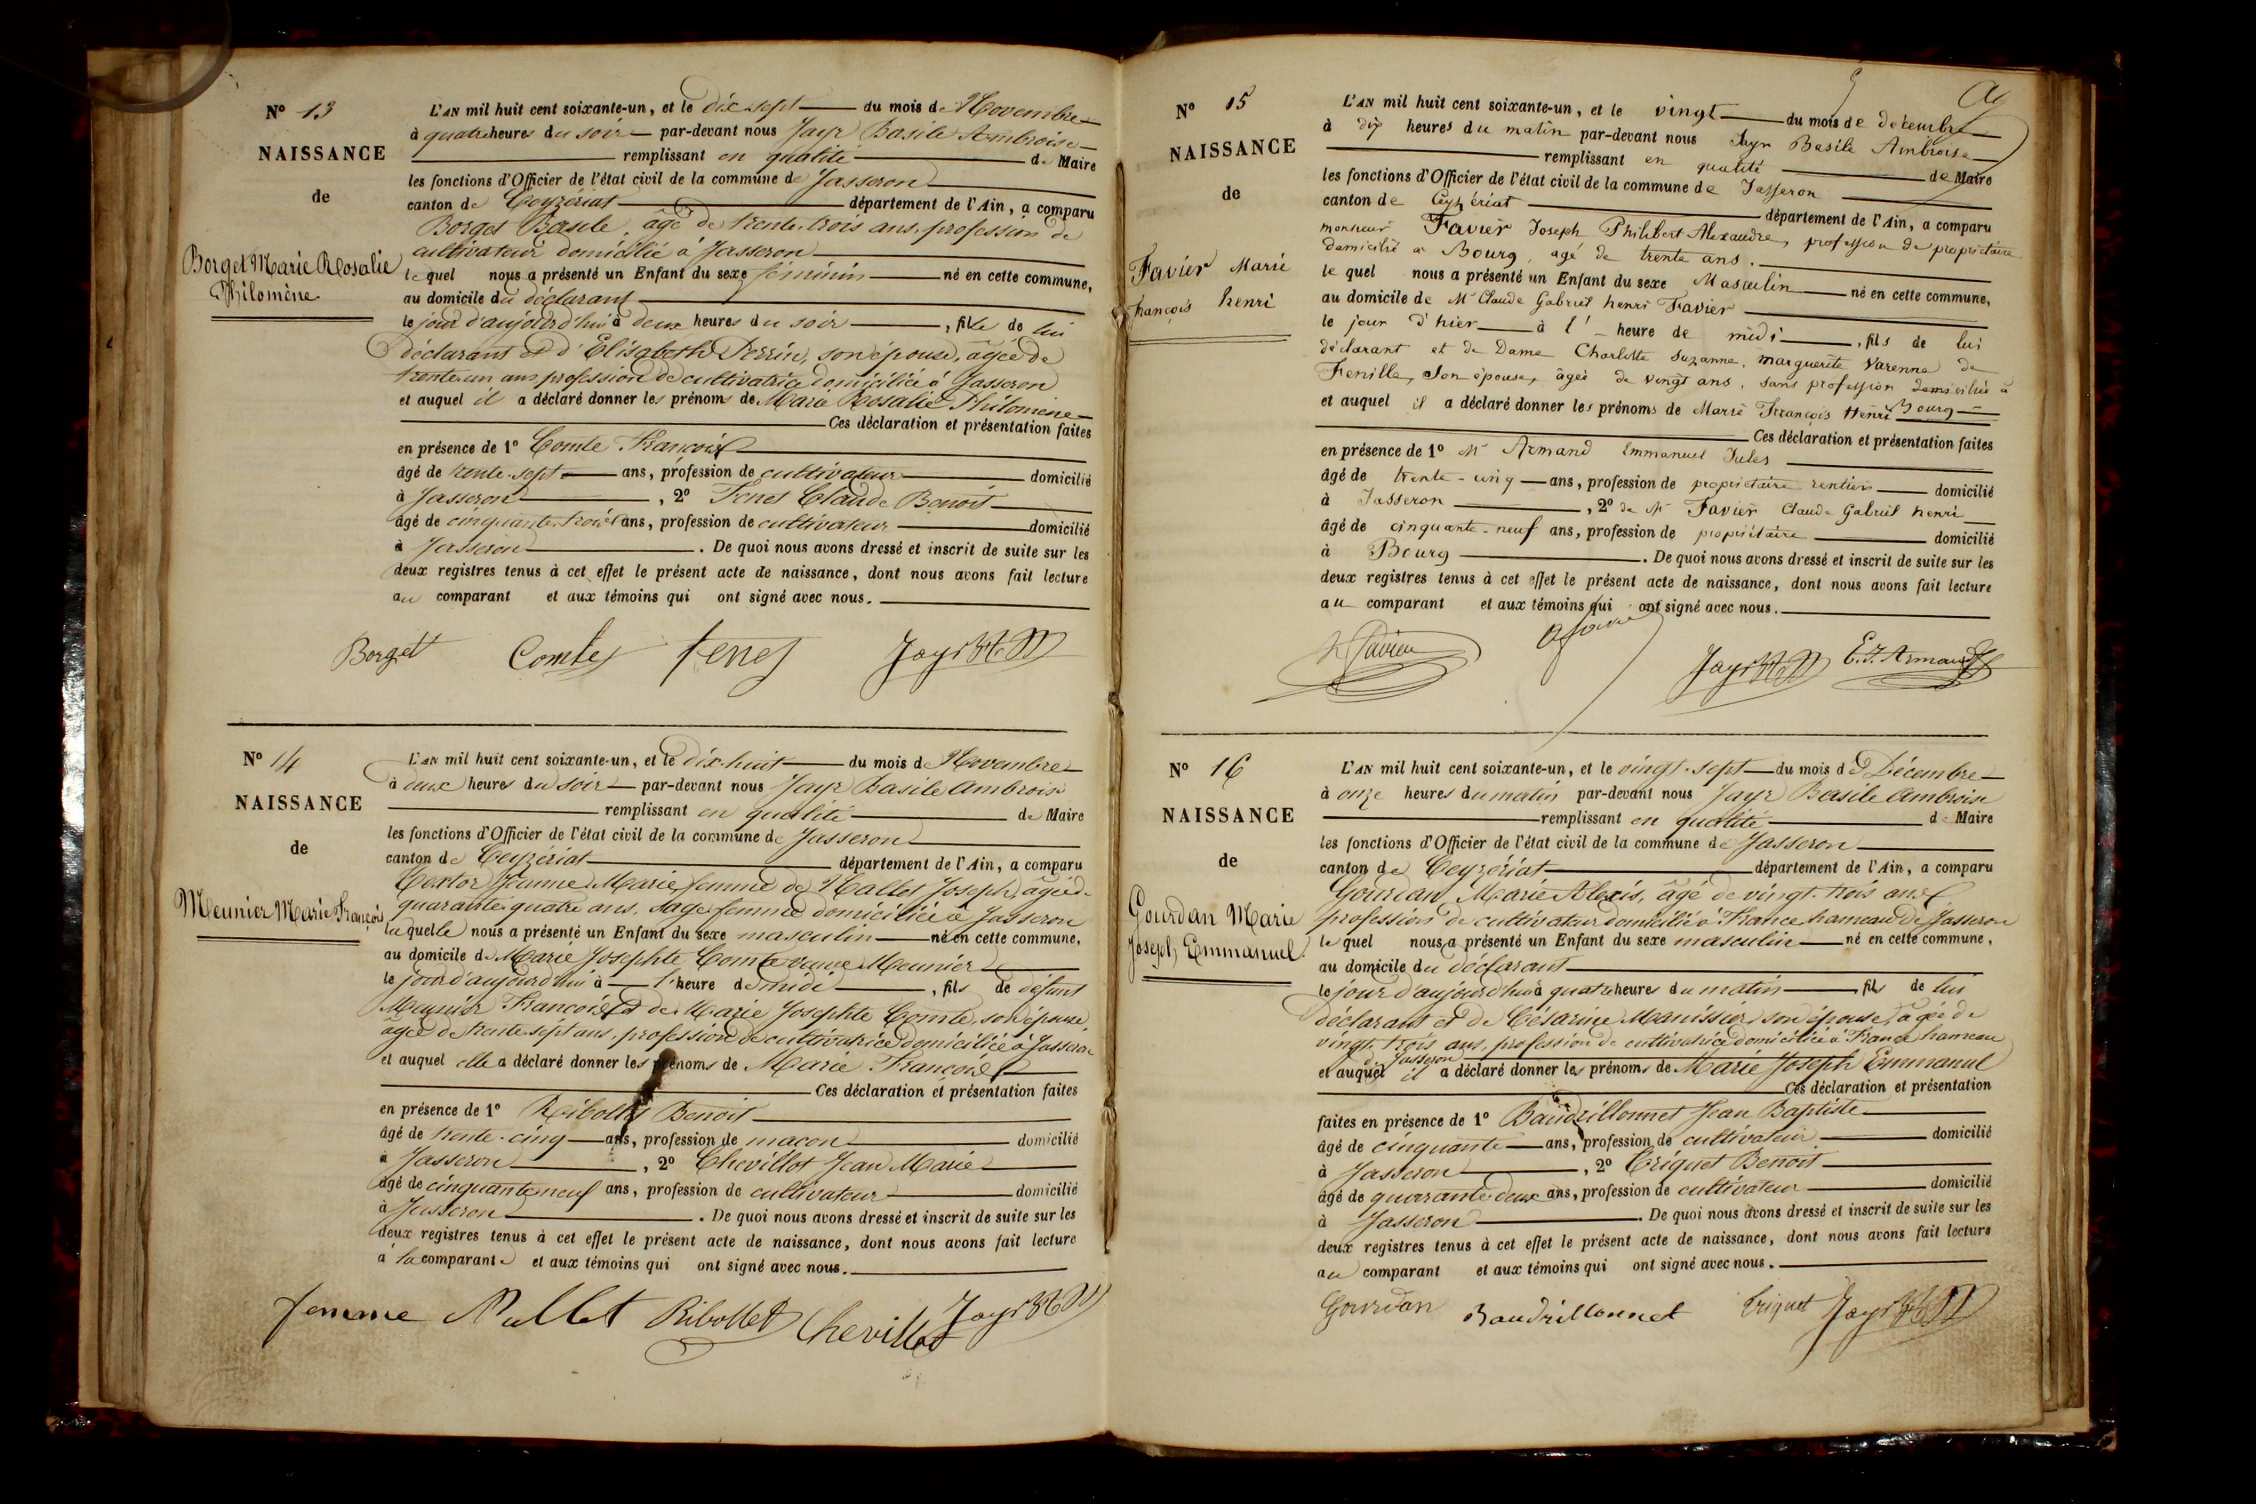 N° 13
NAISSANCE
de
Borget Marie Rosalie
Philomène
L'AN mil huit cent soixante-un, et le dix sept du mois de Novembre
à quatre heures du soir par-devant nous Jayr Basile Ambroise
remplissant en qualité de Maire
les fonctions d'Officier de l'état civil de la commune de Jasseron
canton de Ceyzériat département de l'Ain, a comparu
Borget Basile, âgé de trente-trois ans, profession de
cultivateur domicilié à Jasseron
le quel nous a présenté un Enfant du sexe féminin né en cette commune,
au domicile du déclarant
le jour d'aujourd'hui à deux heures du soir, fille de lui
déclarant et d'Elisabeth Perrin, son épouse, âgée de
trente-un ans profession de cultivatrice domiciliée à Jasseron
et auquel il a déclaré donner les prénoms de Marie Rosalie Philomène
Ces déclaration et présentation faites
en présence de 1° Comte François
âgé de trente-sept ans, profession de cultivateur domicilié
à Jasseron, 2° Tenet Claude Benoit
âgé de cinquante-trois ans, profession de cultivateur domicilié
à Jasseron. De quoi nous avons dressé et inscrit de suite sur les
deux registres tenus à cet effet le présent acte de naissance, dont nous avons fait lecture
au comparant et aux témoins qui ont signé avec nous.
Borget Comte Jayr
N° 14
NAISSANCE
de
Meunier Marie François
L'AN mil huit cent soixante-un, et le dix-huit du mois de Novembre
à deux heures du soir par-devant nous Jayr Basile Ambroise
remplissant en qualité de Maire
les fonctions d'Officier de l'état civil de la commune de Jasseron
canton de Ceyzériat département de l'Ain, a comparu
Jeanne Marie femme de Joseph, âgée de
quarante-quatre ans, sage-femme domiciliée à Jasseron
laquelle nous a présenté un Enfant du sexe masculin né en cette commune,
au domicile de Marie Josephte Comte veuve Meunier
le jour d'aujourd'hui à l'heure de midi, fils de défunt
Meunier François et de Marie Josephte Comte, son épouse,
âgée de trente-sept ans, profession de cultivatrice domiciliée à Jasseron
et auquel elle a déclaré donner les prénoms de Marie François
Ces déclaration et présentation faites
en présence de 1° Ribollet Benoit
âgé de trente-cinq ans, profession de maçon domicilié
à Jasseron, 2° Chevillot Jean Marie
âgé de cinquante neuf ans, profession de cultivateur domicilié
à Jasseron. De quoi nous avons dressé et inscrit de suite sur les
deux registres tenus à cet effet le présent acte de naissance, dont nous avons fait lecture
à la comparante et aux témoins qui ont signé avec nous.
femme Mallet Ribollet Chevillot Jayr
N° 15
NAISSANCE
de
Favier Marie
françois henri
L'AN mil huit cent soixante-un, et le vingt du mois de décembre
à dix heures du matin par-devant nous Jayr Basile Ambroise
remplissant en qualité de Maire
les fonctions d'Officier de l'état civil de la commune de Jasseron
canton de Ceyzériat département de l'Ain, a comparu
monsieur Favier Joseph Philibert Alexandre, profession de propriétaire
domicilié à Bourg, agé de trente ans.
le quel nous a présenté un Enfant du sexe Masculin né en cette commune,
au domicile de Mr Claude Gabriel henri Favier
le jour d'hier à l'heure de midi, fils de lui
déclarant et de Dame Charlotte Suzanne, marguerite Varenne de
Fenille, son épouse, âgée de vingt ans, sans profession domiciliée à
Bourg
et auquel il a déclaré donner les prénoms de Marie François Henri
Ces déclaration et présentation faites
en présence de 1° Mr Armand Emmanuel Jules
âgé de trente-cinq ans, profession de propriétaire rentier domicilié
à Jasseron, 2° de Mr Favier Claude Gabriel henri
âgé de cinquante-neuf ans, profession de propriétaire domicilié
à Bourg. De quoi nous avons dressé et inscrit de suite sur les
deux registres tenus à cet effet le présent acte de naissance, dont nous avons fait lecture
au comparant et aux témoins qui ont signé avec nous.
h Favier a favier Jayr E. J. Armand
N° 16
NAISSANCE
de
Gourdan Marie
Joseph Emmanuel
L'AN mil huit cent soixante-un, et le vingt-sept du mois de Décembre
à onze heures du matin par-devant nous Jayr Basile Ambroise
remplissant en qualité de Maire
les fonctions d'Officier de l'état civil de la commune de Jasseron
canton de Ceyzériat département de l'Ain, a comparu
Gourdan, Marie Alexis, âgé de vingt-trois ans,
profession de cultivateur domicilié à France hameau de Jasseron
le quel nous a présenté un Enfant du sexe masculin né en cette commune,
au domicile du déclarant
le jour d'aujourd'hui à quatre heures du matin, fils de lui
déclarant et de Césarine Manissier son épouse, âgée de
vingt-trois ans, profession de cultivatrice domiciliée à France hameau
de Jasseron
et auquel il a déclaré donner les prénoms de Marie Joseph Emmanuel
Ces déclaration et présentation
faites en présence de 1° Baudrillonnet Jean Baptiste
âgé de cinquante ans, profession de cultivateur domicilié
à Jasseron, 2° Triquet Benoit
âgé de quarante-deux ans, profession de cultivateur domicilié
à Jasseron. De quoi nous avons dressé et inscrit de suite sur les
deux registres tenus à cet effet le présent acte de naissance, dont nous avons fait lecture
au comparant et aux témoins qui ont signé avec nous.
Gourdan Baudrillonnet triquet Jayr